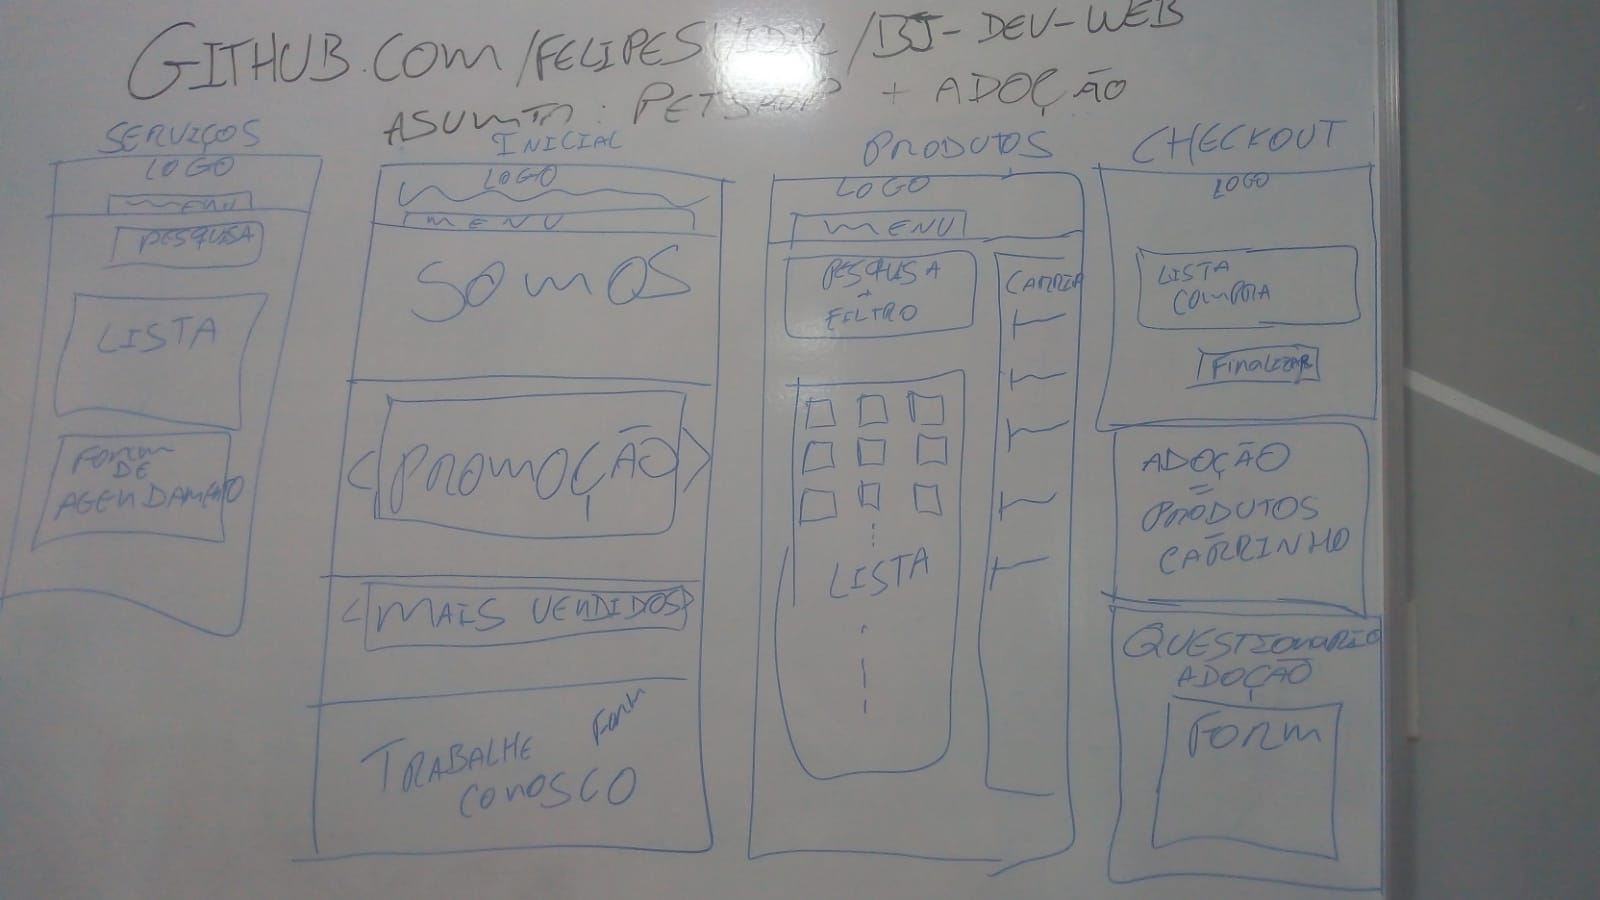 GITHUB.COM/FELIPESVIDAL/BJ-DEV-WEB
ASUNTO: PETSHOP + ADOÇÃO
SERVIÇOS
LOGO
MENU
PESQUISA
LISTA
FORM
DE
AGENDAMENTO
INICIAL
LOGO
MENU
SOMOS
< PROMOÇÃO >
< MAIS VENDIDOS >
TRABALHE
CONOSCO
Form
PRODUTOS
LOGO
MENU
PESQUISA
+
FILTRO
CARRIN
LISTA
CHECKOUT
LOGO
LISTA
COMPRA
Finalizar
ADOÇÃO
=
PRODUTOS
CARRINHO
QUESTIONARIO
ADOÇÃO
FORM